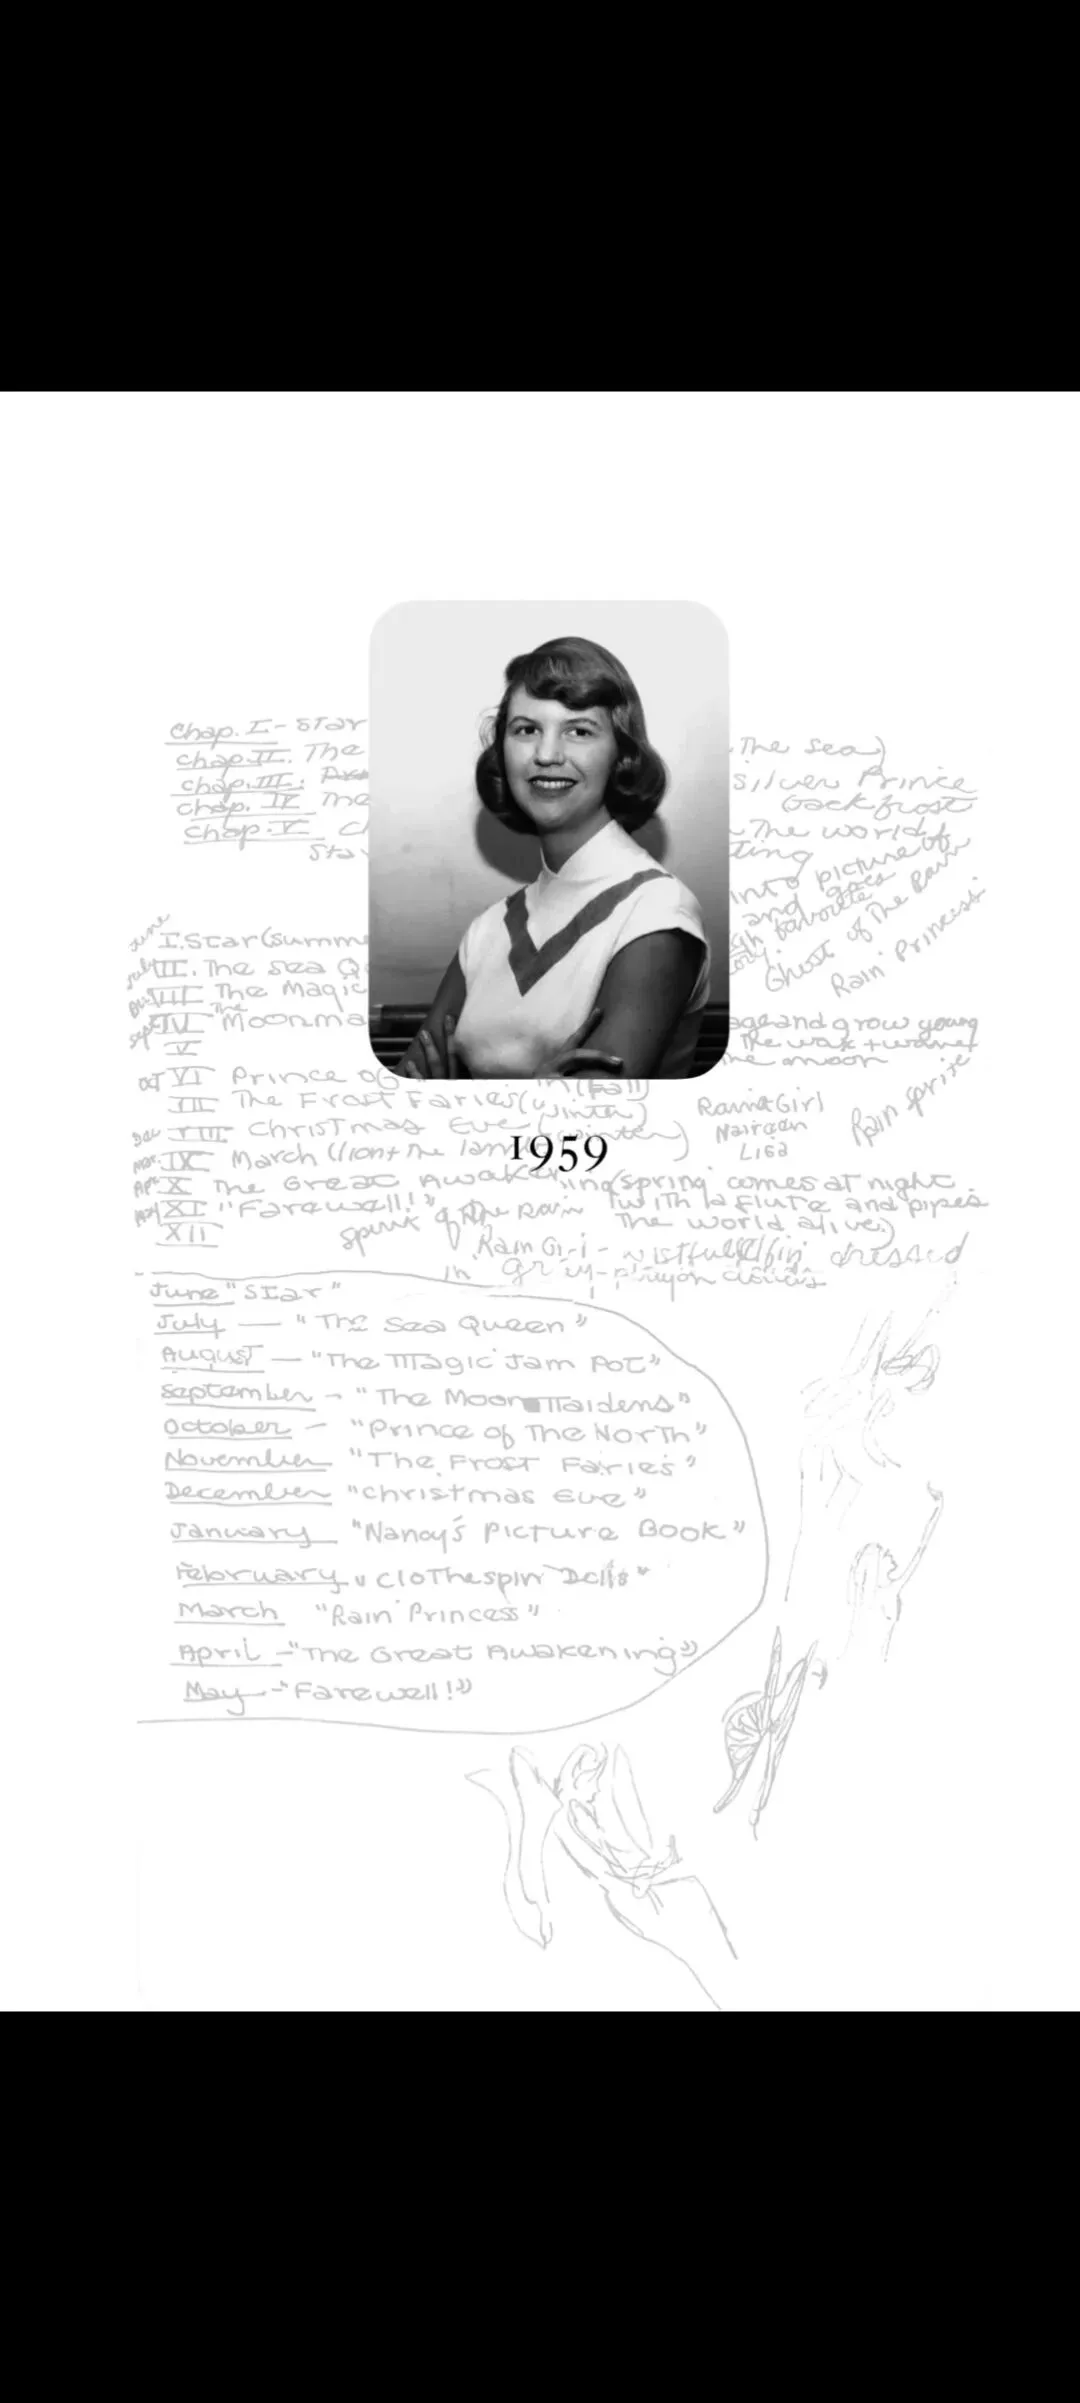 Chap. I - Star
chap. II. The
The Sea)
chap. III.
silver Prince
chap. IV The
Jack frost
Chap. V
The world
ting
into picture of
and goes
favorite
Ghost of The Rain
Rain Princess
June I. Star (summe
July II. The Sea Q
III The Magic
Sept IV The Moonma
age and grow young
V
The wax + wane
the moon
Oct VI Prince of
in (Fall)
VII The Frost Faries (winter)
Dec VIII Christmas Eve (winter)
Rain Girl
Rain sprite
Lisa
Mar. IX March (lion + the lamb
1959
Apr X The Great Awakening (spring comes at night
XI "Farewell!"
with a flute and pipes
The world alive)
XII
spirit of the rain
Rain Girl - wistful dressed
in gray clouds
June "Star"
July — "The Sea Queen"
August — "The Magic Jam Pot"
September - "The Moon Maidens"
October - "Prince of The North"
November "The Frost Faries"
December "Christmas Eve"
January "Nancy's Picture Book"
February "Clothespin Dolls"
March "Rain Princess"
April - "The Great Awakening"
May - "Farewell!"